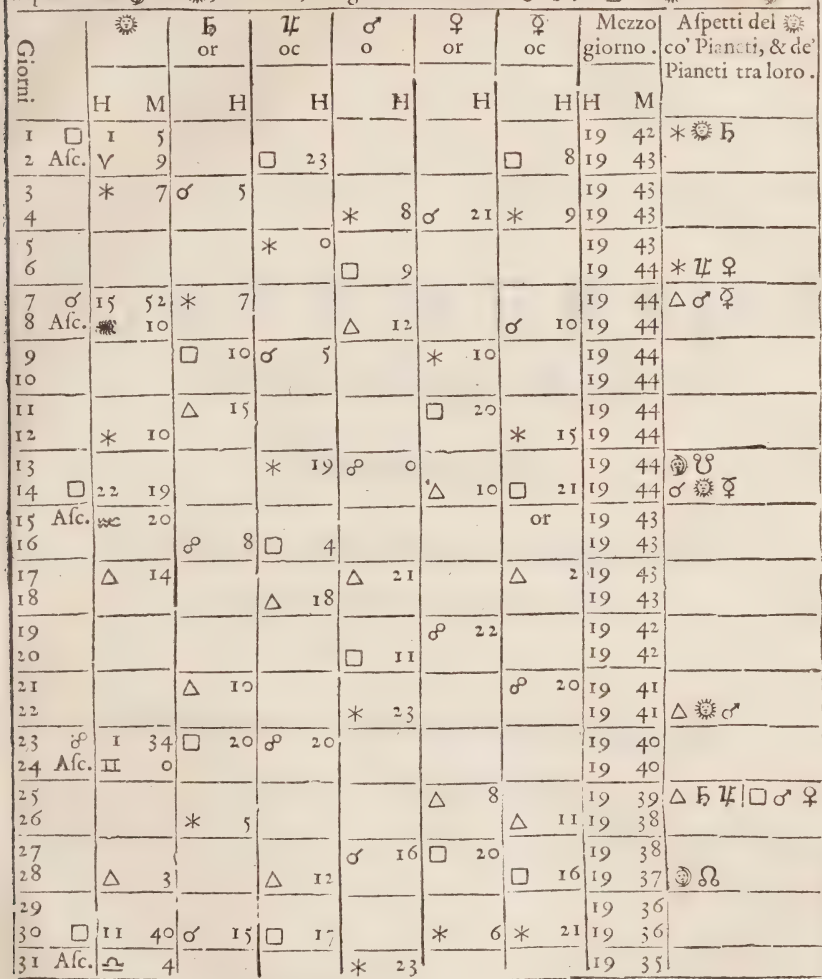 ☼ ♄ ♃ ♂ ♀ ☿ Mezzo Aſpetti del ☼
or oc o or oc giorno. co' Pianeti, & de'
Giorni Pianeti tra loro.
H M H H H H H H M
1 □ 1 5 19 42 ⚹ ☼ ♄
2 Aſc. ♈ 9 □ 23 □ 8 19 43
3 ⚹ 7 ☌ 5 19 43
4 ⚹ 8 ☌ 21 ⚹ 9 19 43
5 ⚹ 0 19 43
6 □ 9 19 44 ⚹ ♃ ♀
7 ☌ 15 52 ⚹ 7 19 44 △ ♂ ☿
8 Aſc. 10 △ 12 ☌ 10 19 44
9 □ 10 ☌ 5 ⚹ 10 19 44
10 19 44
11 △ 15 □ 20 19 44
12 ⚹ 10 ⚹ 15 19 44
13 ⚹ 19 ☍ 0 19 44 ☽ ☋
14 □ 22 19 △ 10 □ 21 19 44 ☌ ☼ ☿
15 Aſc. ♒ 20 or 19 43
16 ☍ 8 □ 4 19 43
17 △ 14 △ 21 △ 2 19 43
18 △ 18 19 43
19 ☍ 22 19 42
20 □ 11 19 42
21 △ 10 ☍ 20 19 41
22 ⚹ 23 19 41 △ ☼ ♂
23 ☍ 1 34 □ 20 ☍ 20 19 40
24 Aſc. ♊ 0 19 40
25 △ 8 19 39 △ ♄ ♃ | □ ♂ ♀
26 ⚹ 5 △ 11 19 38
27 ☌ 16 □ 20 19 38
28 △ 3 △ 12 □ 16 19 37 ☽ ☊
29 19 36
30 □ 11 40 ☌ 15 □ 17 ⚹ 6 ⚹ 21 19 36
31 Aſc. ♎ 4 ⚹ 23 19 35